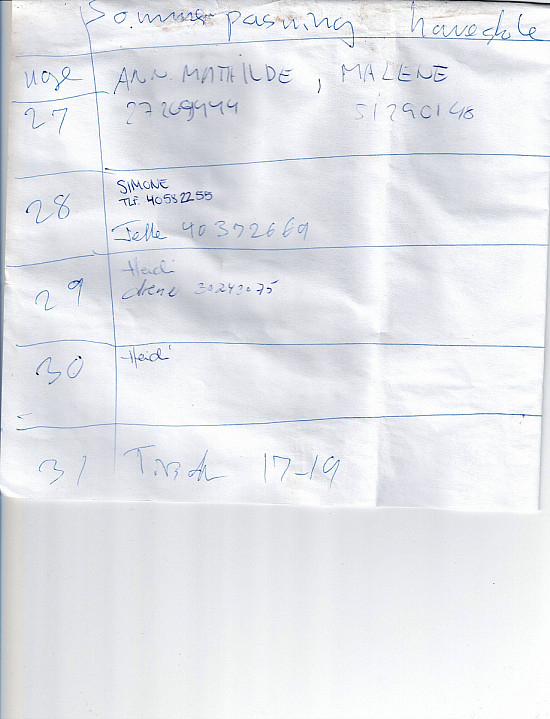 Sommerpasning haveskole
uge ANN MATHILDE, MALENE
27 27269444 51290148
SIMONE
28 TLF. 40582255
Jelle 40372669
Heidi
29 30243075
30 Heidi
31 17-19